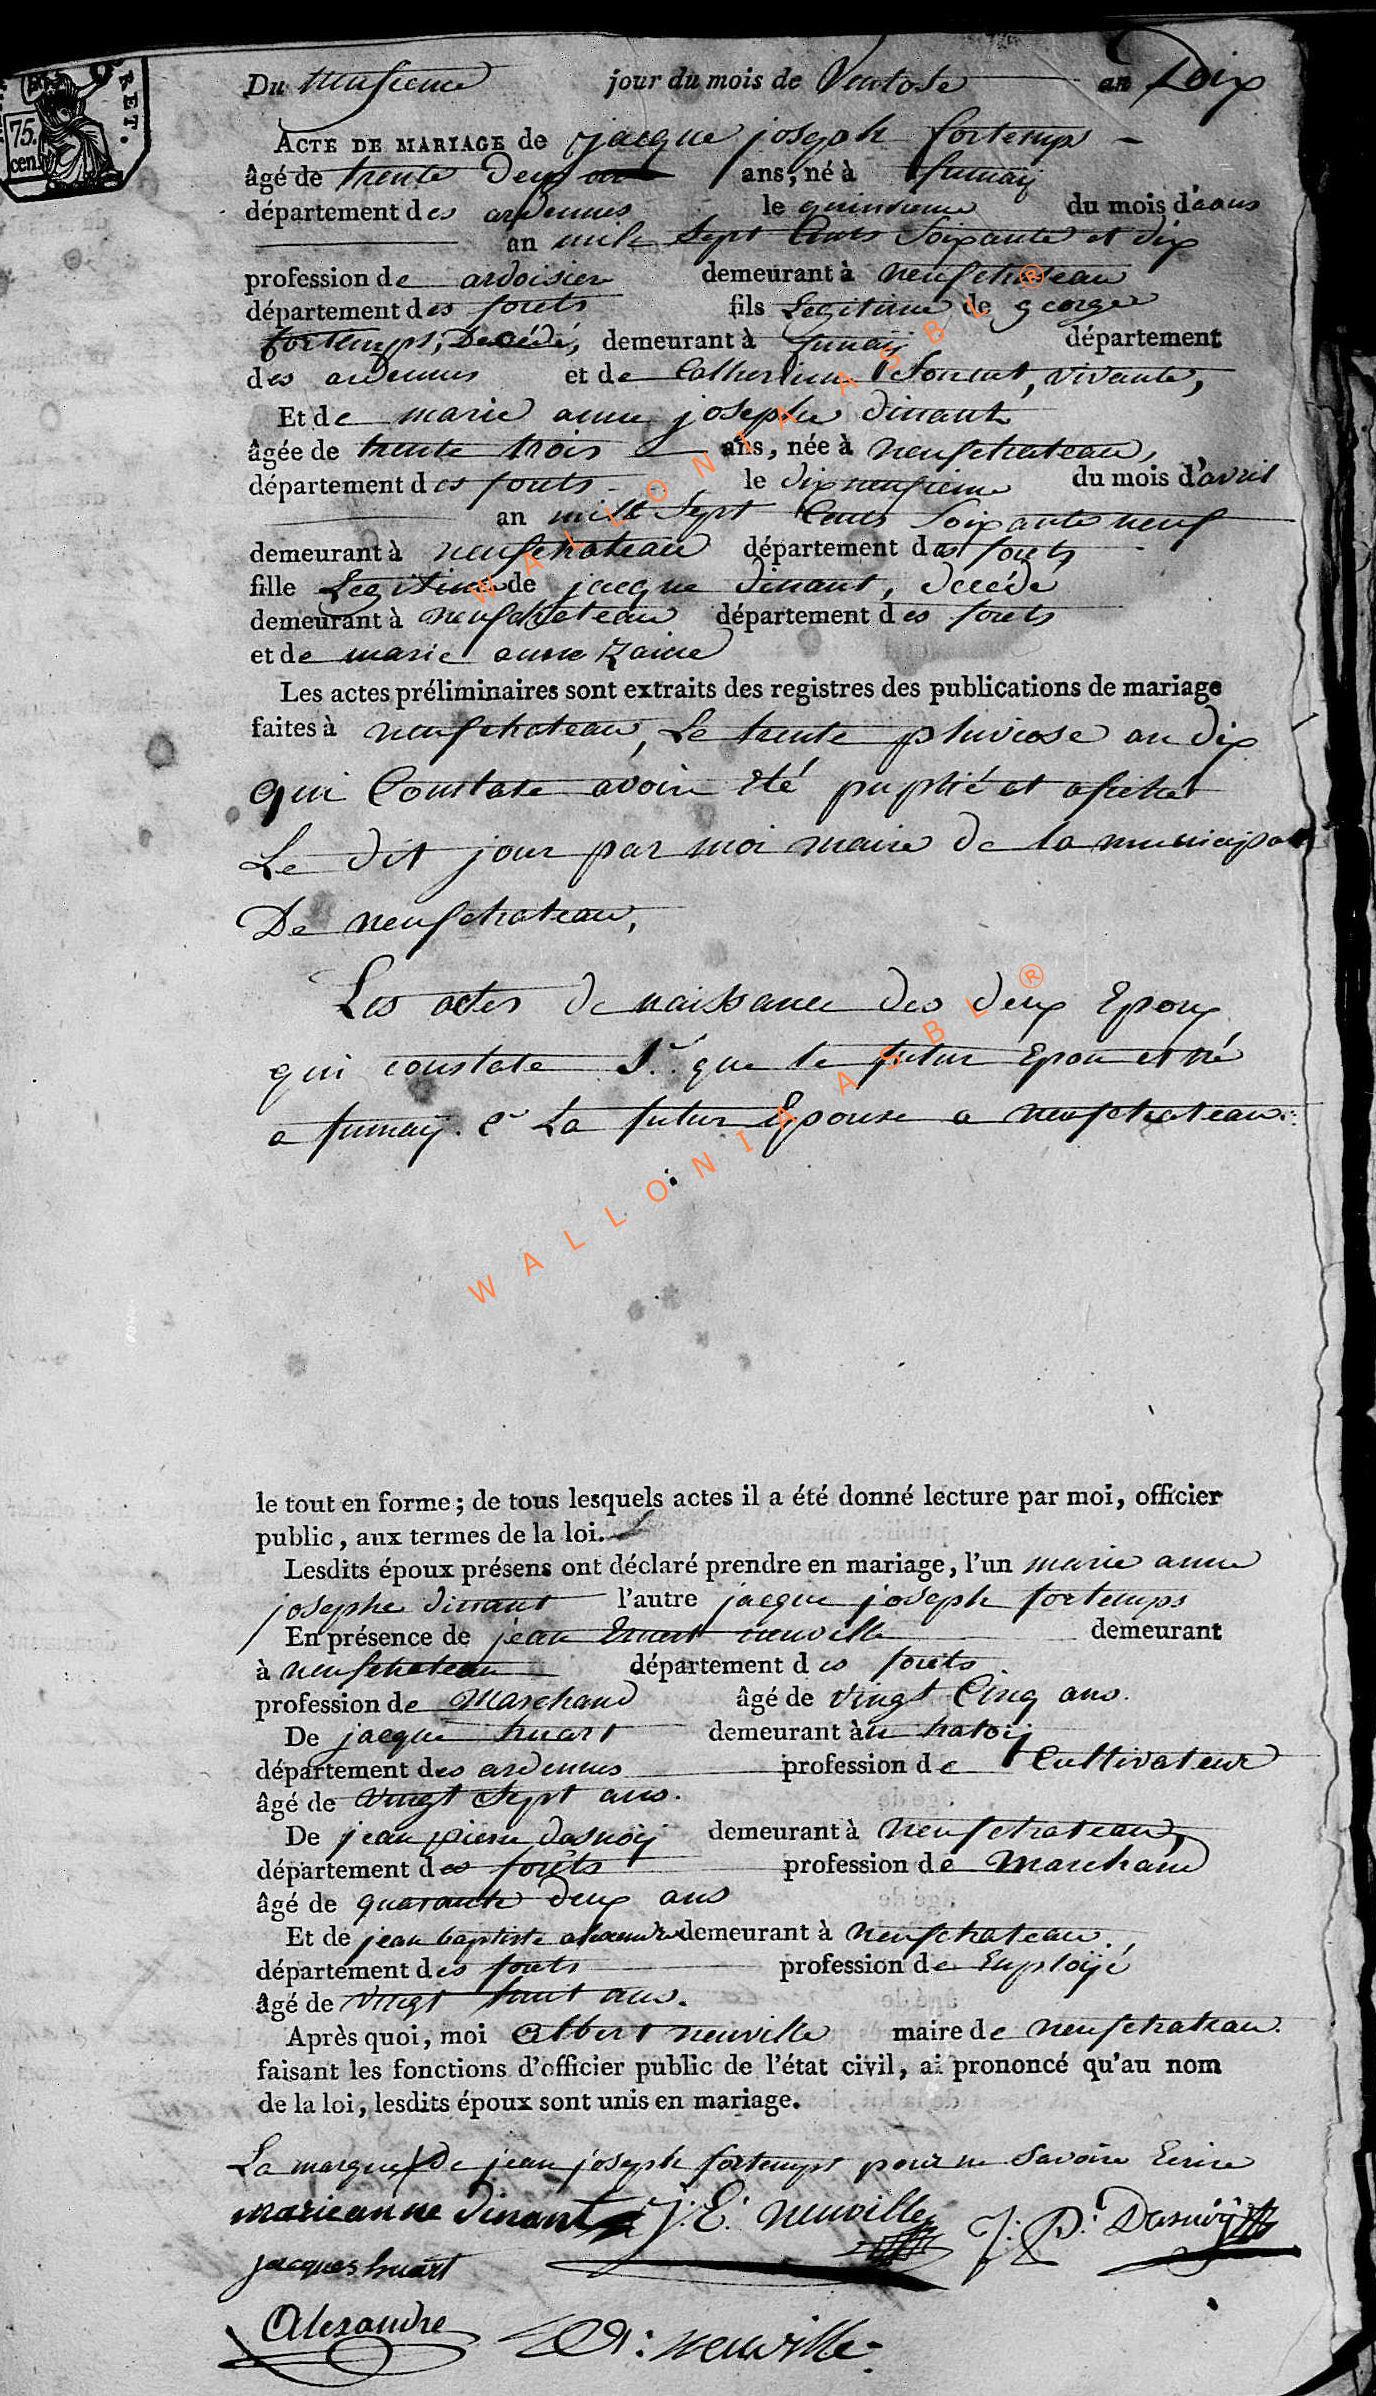 75. cen. RET.
Du neufieme jour du mois de Ventose an Doix
ACTE DE MARIAGE de jacque joseph fortemps
âgé de trente Deux ans, né à fumaÿ
département des ardennes le quinsieme du mois d'aous
an mile Sept Cents Soixante et dix
profession de ardoisier demeurant à neufchateau
département des forêts fils Legitime de george
fortemps, Décédé, demeurant à fumaÿ département
des ardennes et de Catherinne , vivante,
Et de marie anne josephe dinant
âgée de trente trois ans, née à neufchateau,
département des forets le dixneufieme du mois d'avril
an mille Sept Cents Soixante neuf
demeurant à neufchateau département des forets
fille Legitime de jacque dinant, décédé
demeurant à neufchateau département des forets
et de marie anne Zaine
Les actes préliminaires sont extraits des registres des publications de mariage
faites à neufchateau, Le trente pluviose an dix
qui Constate avoir été puplié et afiché
Le dit jour par moi maire de la municipa
De neufchateau,
Les actes de naissance des deux Epoux
qui constate que le futur Epou et né
a fumaÿ. e La futur Epouse a neufchateau
le tout en forme; de tous lesquels actes il a été donné lecture par moi, officier
public, aux termes de la loi.
Lesdits époux présens ont déclaré prendre en mariage, l'un marie anne
josephe dinant l'autre jacque joseph fortemps
En présence de jean neuville demeurant
à neufchateau département des forêts
profession de Marchand âgé de vingt Cinq ans.
De jacque huart demeurant à
département des ardennes profession de Cultivateur
âgé de vingt Sept ans.
De jean pierre dasnoÿ demeurant à neufchateau,
département des forêts profession de Marchand
âgé de quarante deux ans
Et de jean baptiste alexandre demeurant à neufchateau.
département des forets profession de Employé
âgé de vingt huit ans.
Après quoi, moi Albert neuville maire de neufchateau.
faisant les fonctions d'officier public de l'état civil, ai prononcé qu'au nom
de la loi, lesdits époux sont unis en mariage.
La marque de jean joseph fortemps pour ne Savoir Ecrire
marieanne dinant J: E: neuville J: P: Dasnoÿ
jacques huart
Alexandre A: neuville
WALLONIA ASBL ®
WALLONIA ASBL ®